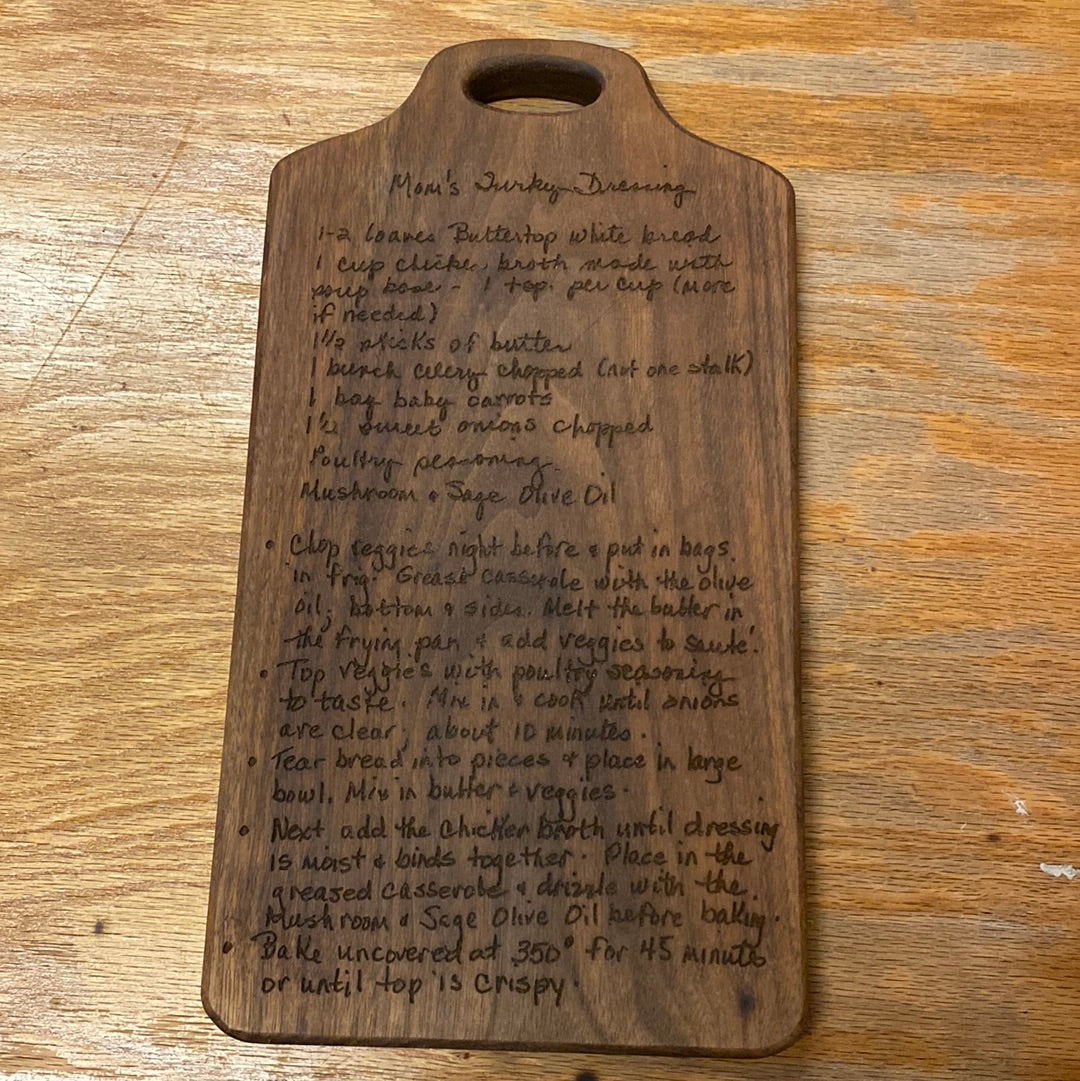 Mom's Turky Dressing
1-2 loaves Buttertop white bread
1 cup chicken broth made with
soup base - 1 tsp. per cup (more
if needed)
1 1/2 sticks of butter
1 bunch celery chopped (not one stalk)
1 bag baby carrots
1 1/2 sweet onions chopped
Poultry seasoning
Mushroom & Sage Olive Oil
• Chop veggies night before & put in bags
in frig. Grease casserole with the olive
oil; bottom & sides. Melt the butter in
the frying pan & add veggies to sauté.
• Top veggies with poultry seasoning
to taste. Mix in & cook until onions
are clear; about 10 minutes.
• Tear bread into pieces & place in large
bowl. Mix in butter & veggies.
• Next add the chicken broth until dressing
is moist & binds together. Place in the
greased casserole & drizzle with the
Mushroom & Sage Olive Oil before baking.
• Bake uncovered at 350° for 45 minutes
or until top is crispy.